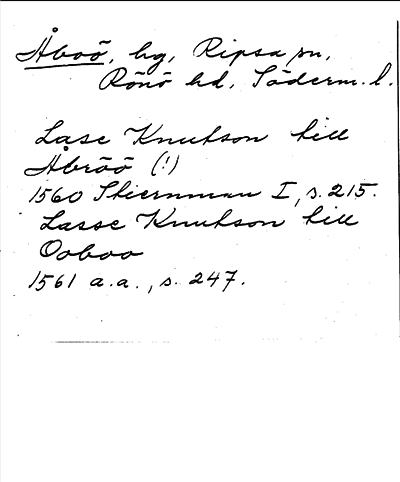 Åboö, hg, Ripsa sn,
Rönö hd, Söderm. l.
Lase Knutson till
Åbröö (!)
1560 Stiernman I, s. 215.
Lasse Knutson till
Ooboo
1561 a.a., s. 247.